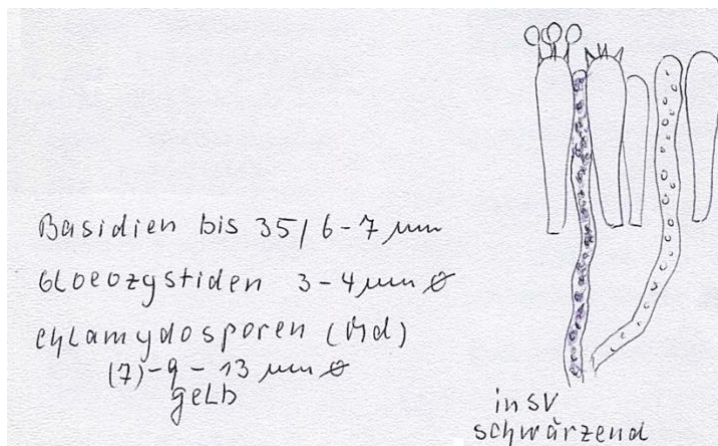 Basidien bis 35/6-7 µm
Gloeozystiden 3-4 µm ø
Chlamydosporen (Md)
(7)-9-13 µm ø
gelb
in SV
schwärzend